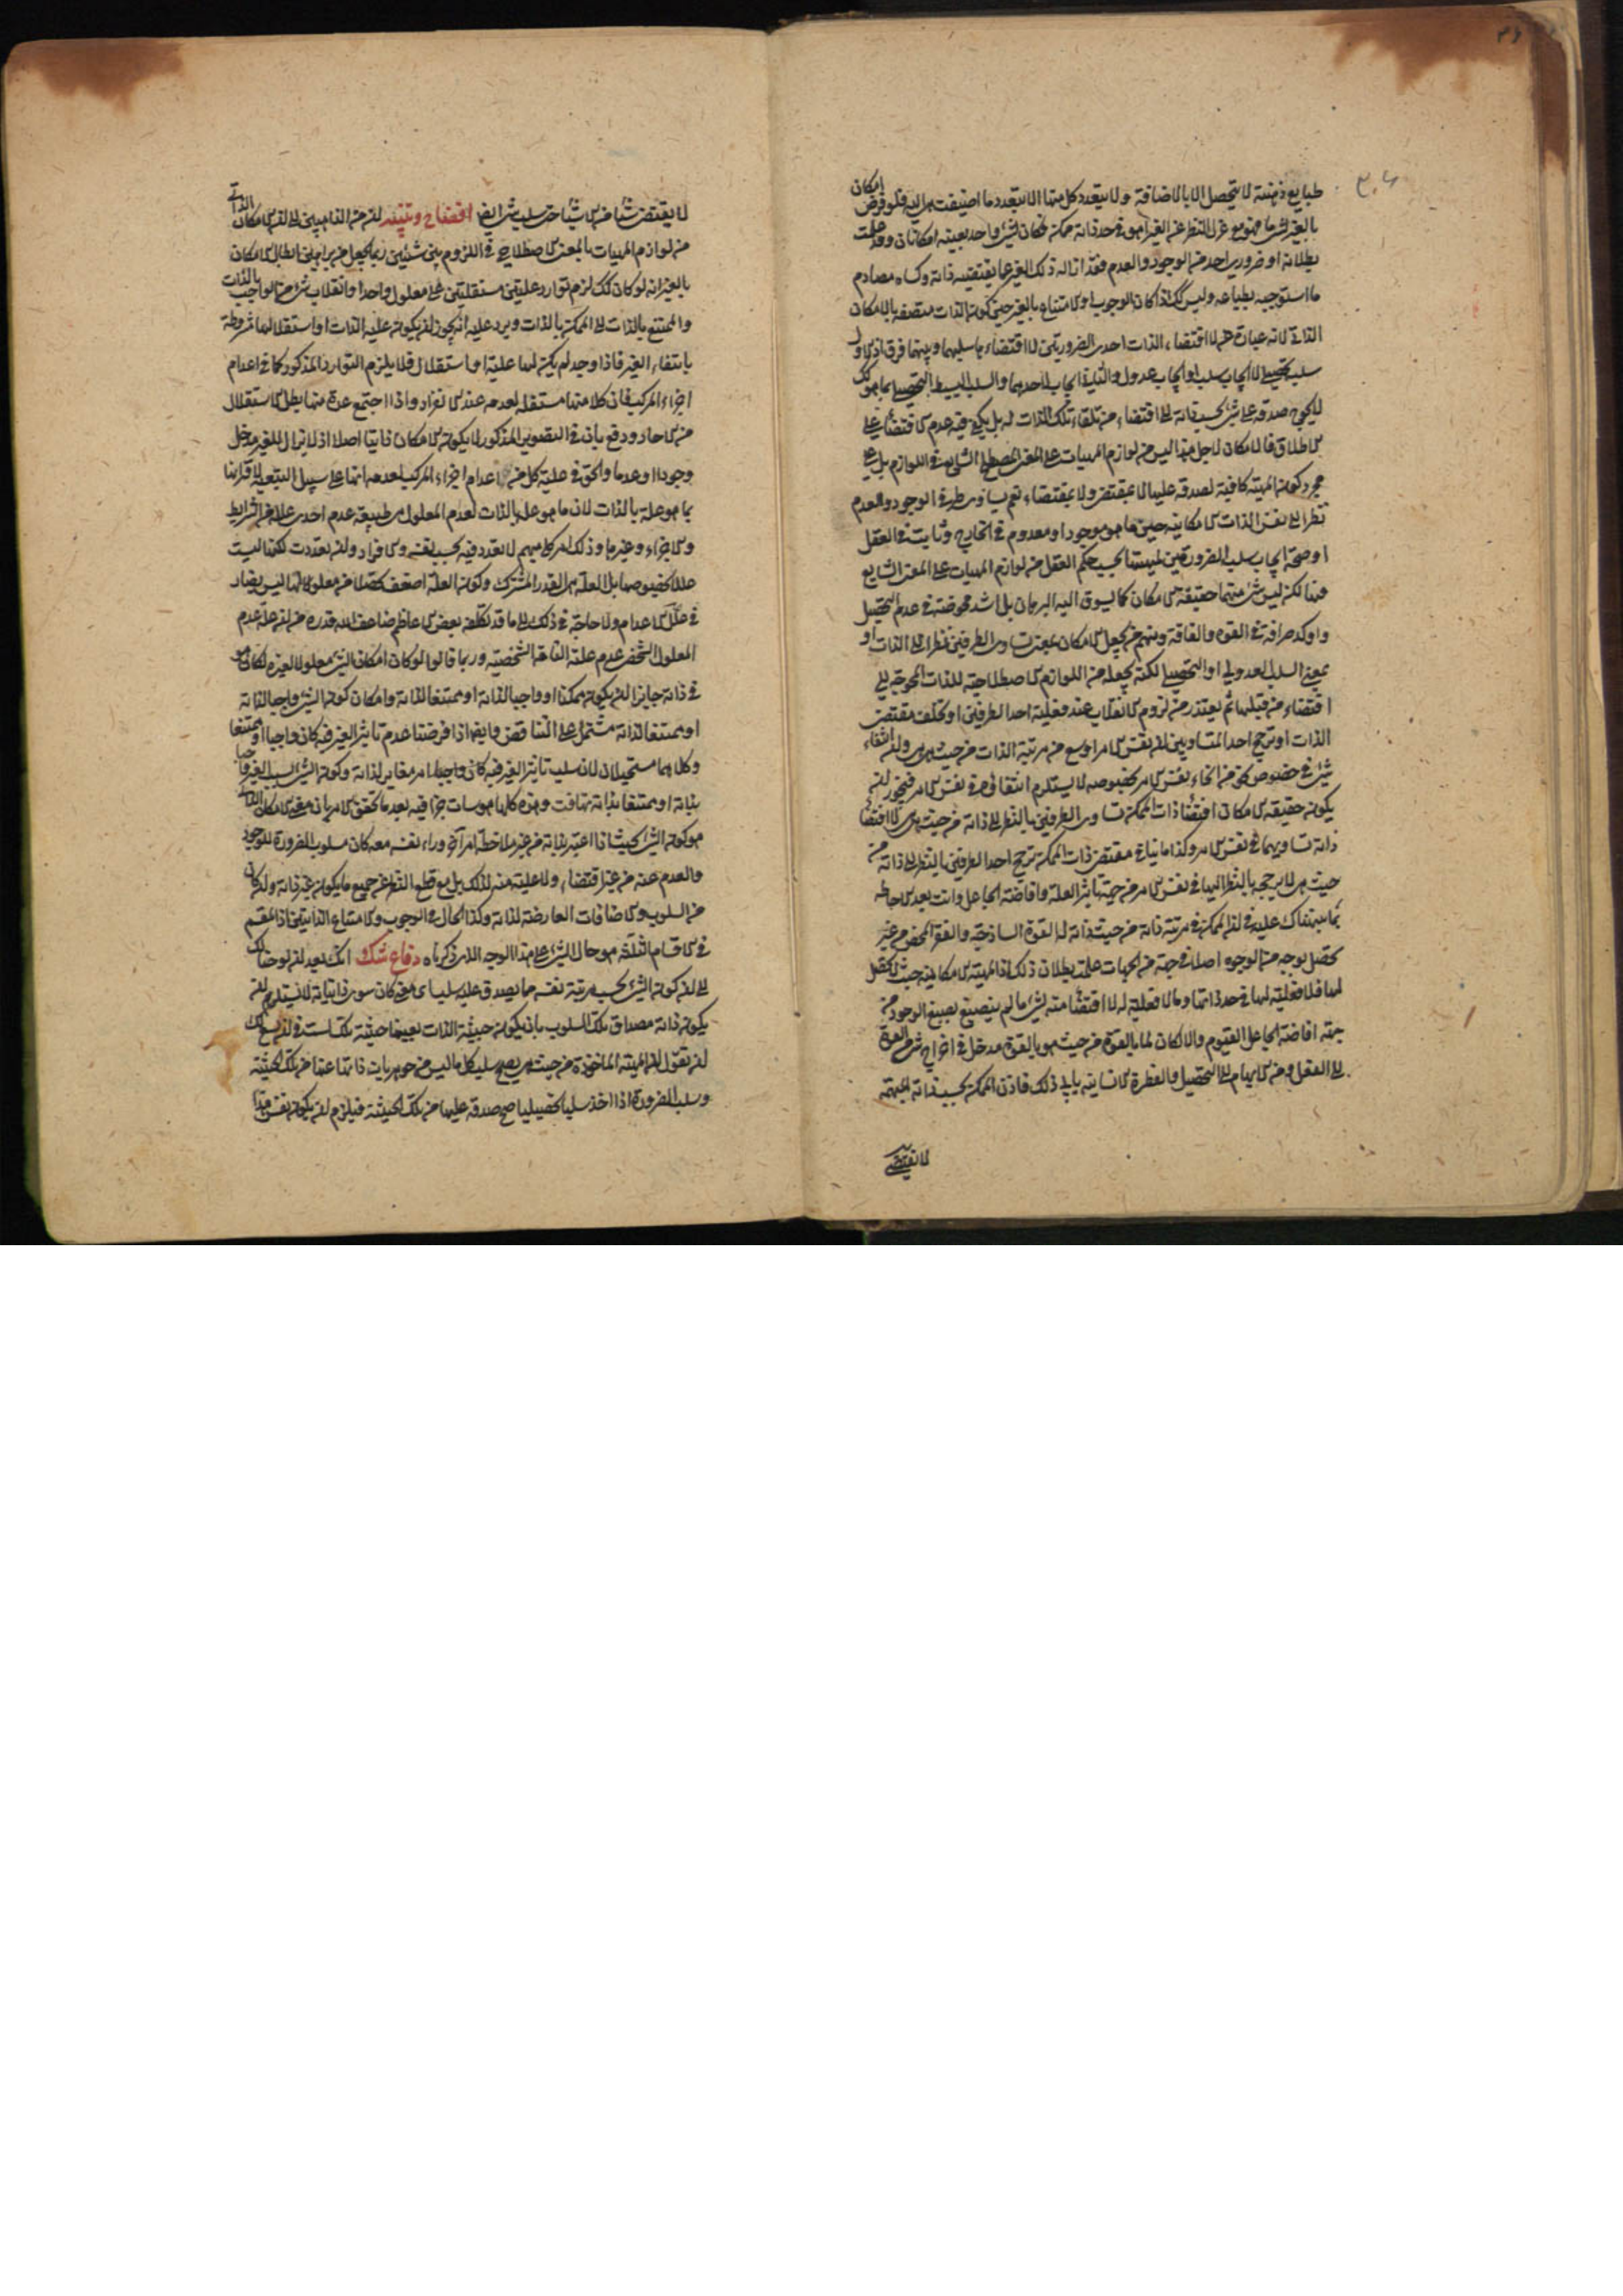 طبايع ذهنية لا يتحصل الا بالاضافة ولا يتعدد كل منها الا بتعدد ما اضيفت هى اليه فلو فرض امكان
بالغير لشئ ما فهو مع عزل النظر عن الغير اهو فى حد ذاته ممكن فكان لشئ واحد بعينه امكانان وقد علمت
بطلانه او ضرورى احد من الوجود والعدم فقد ازاله ذلك الغير عما يقتضيه ذاته وكساه مصادم
ما استوجبه بطباعه وليس كك اذا كان الوجوب او الامتناع بالغير حين كون الذات متصفه بالامكان
الذاتى لانه عبارة عن لا اقتضاء الذات احدى الضرورتين لا اقتضاء ما سلبهما وبينهما فرق اذ الاول
سلب تحصيلى لا ايجاب سلب او ايجاب عدول والثانى ايجاب لاحدهما والسلب البسيط التحصيلى بما هو كك
لا يحوج صدقه على شئ بحسب ذاته الى اقتضاء من تلقاء تلك الذات له بل يكفى فيه عدم الاقتضاء على
الاطلاق فالامكان لاجل هذا ليس من لوازم المهيات على المعنى المصطلح الشايع فى اللوازم بل على
مجرد كون المهية كافية لصدقه عليها لا بمقتض ولا بمقتضاء نعم تساوى طرفى الوجود والعدم
نظرا الى نفس الذات الامكانية حين ما هو موجود او معدوم فى الخارج وثابت فى العقل
او صحة ايجاب سلب الضرورتين لمهيتها بحسب حكم العقل من لوازم المهيات على المعنى الشايع
فيها لكن ليس شئ منهما حقيقة الامكان كما يسوق اليه البرهان بل اشد محوضته فى عدم التحصيل
واوكد صرافة فى القوة والفاقة ومنهم من يجعل الامكان بمعنى تساوى الطرفين نظرا الى الذات او
بمعنى السلب العدولى او التحصيلى لكنه يجعله من اللوازم الاصطلاحية للذات المحوجة الى
اقتضاء من قبلها ثم يعتذر من لزوم الانقلاب عند فعلية احد الطرفين او تخلف مقتضى
الذات او ترجح احد المتساويين لان نفس الامر اوسع من مرتبة الذات من حيث هى هى ولان انتفاء
شئ فى خصوص نحو من انحاء نفس الامر بخصوصه لا يستلزم انتفاءه فى نفس الامر فيجوز ان
يكون حقيقة الامكان اقتضاء ذات الممكن تساوى الطرفين بالنظر الى ذاته من حيث هى لا اقتضاء
ذاته تساويهما فى نفس الامر وكذا ما ينافى مقتضى ذات الممكن ترجح احد الطرفين بالنظر الى ذاته من
حيث هى لا يرجحه بالنظر اليها فى نفس الامر من جهة تأثير العلة وافاضة الجاعل وانت بعد الاحاطه
بما نبهناك عليه فى ان الممكن فى مرتبة ذاته من حيث ذاته له القوة الساذجة والفقر المحض من غير
تحصل بوجه من الوجوه اصلا فى جهة من الجهات علمت بطلان ذلك اذ المهية الامكانية حيث لا تحصل
لها فلا فعلية لها فى حد ذاتها وما لا فعلية له لا اقتضاء منه لشئ ما لم ينصبغ بصبغ الوجود من
جهة افاضة الجاعل القيوم والا لكان لما بالقوة من حيث هو بالقوة مدخل فى اخراج شئ من القوة
الى الفعل ومن الابهام الى التحصيل والفطرة الانسانية يابى ذلك فاذن الممكن بحسب ذاته المبهمة
لا يقتضى
لا يقتضى شيئا من الاشياء حتى سلب شئ ايضا افتضاح وتنبيه ان من الذاهبين الى ان الامكان الذاتى
من لوازم المهيات بالمعنى الاصطلاحى فى اللزوم بين شيئين ربما يجعل من براهين ابطال الامكان
بالغير انه لو كان كك لزم توارد علتين مستقلتين على معلول واحد او انقلاب شئ من الواجب بالذات
والممتنع بالذات الى الممكن بالذات ويرد عليه انه يجوز ان يكون علية الذات او استقلالها مشروطة
بانتفاء الغير فاذا وجد لم يكن لها علية او استقلال فلا يلزم التوارد المذكور كما فى اعدام
اجزاء المركب فان كلا منها مستقله لعدمه عند الانفراد واذا اجتمع عدة منها بطل الاستقلال
من الاحاد ودفع بان فى التصوير المذكور لا يكون الامكان ذاتيا اصلا اذ لا يزال للغير مدخل
وجودا او عدما والحق فى علية كل من اعدام اجزاء المركب لعدمه انها على سبيل التبعية لاقترانها
بما هو علة بالذات لان ما هو علة بالذات لعدم المعلول هى طبيعة عدم احدى علله من الشرايط
والاجزاء وغيرها وذلك امر كلى مبهم لا تعدد فيه بحسب نفسه والافراد وان تعددت لكنها ليست
عللا بخصوصها بل العلة هى القدر المشترك وكون العلة اضعف تحصلا من معلولها ليس بضار
فى علل الاعدام ولا حاجة فى ذلك الى ما قد تكلفه بعض الاعاظم ضاعف الله قدره من ان علة عدم
المعلول الشخصى عدم علته التامة الشخصية وربما قالوا لو كان امكان الشئ معلولا لغيره لكان هو
فى ذاته جايزا ان يكون ممكنا او واجبا لذاته او ممتنعا لذاته وامكان كون الشئ واجبا لذاته
او ممتنعا لذاته مشتمل على التناقض وايضا اذا فرضنا عدم تأثير الغير فيه كان واجبا او ممتنعا
وكلاهما مستحيلان لان سلب تأثير الغير فيه كان واجبا لامر مغاير لذاته وكون الشئ لسبب الغير واجبا
بذاته او ممتنعا بذاته تهافت وهذه كلها هوسات جزافيه بعد ما تحقق الامر بان معنى الامكان الذاتى
هو كون الشئ بحيث اذا اعتبر بذاته من غير ملاحظة امر آخر وراء نفسه معه كان مسلوب الضرورة للوجود
والعدم عنه من غير اقتضاء ولا علية منه لذلك بل مع قطع النظر عن جميع ما يكون غير ذاته ولو كان
من السلوب والاضافات العارضة لذاته وكذا الحال فى الوجوب والامتناع الذاتيين اذ المقسم
فى الاقسام الثلثة هو حال الشئ على هذا الوجه الذى ذكرناه دفاع شك انك بعد ان لوحنا لك
الى ان كون الشئ بحسب مرتبة نفسه مما يصدق عليه سلب اى معنى كان سوى ذاتياته لا يستلزم ان
يكون ذاته مصداق تلك السلوب بان يكون حيثية الذات بعينها حيثية تلك لست فى ان يسع لك
ان تقول ان المهية الماخوذة من حيث هى يصح سلب كل ما ليس من جوهريات ذاتها عنها من تلك الحيثية
وسلب الضرورة اذا اخذ سلبا تحصيليا صح صدقه عليها من تلك الحيثية فيلزم ان يكون نفس هذا